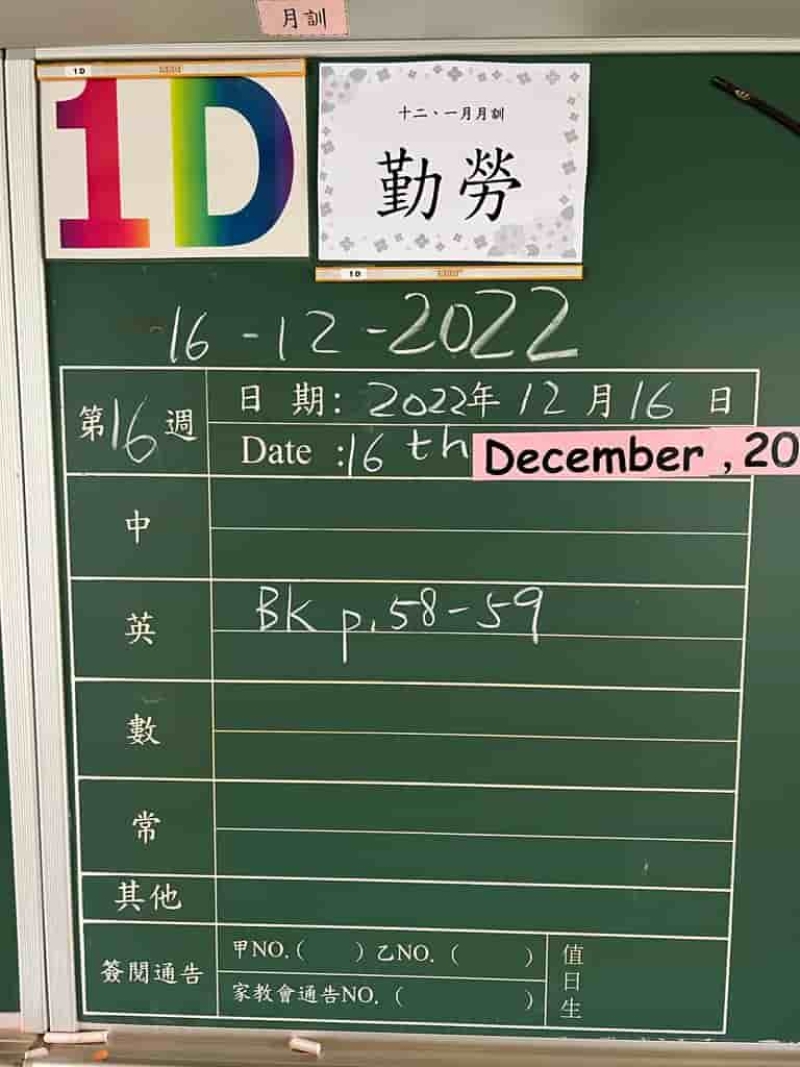 月訓
1D
1D
十二、一月月訓
勤勞
1D
16-12-2022
第16週
日 期: 2022年 12 月 16 日
Date :16 th December , 20
中
英
BK p.58-59
數
常
其他
簽閱通告
甲NO.( ) 乙NO. ( )
家教會通告NO. ( )
值日生